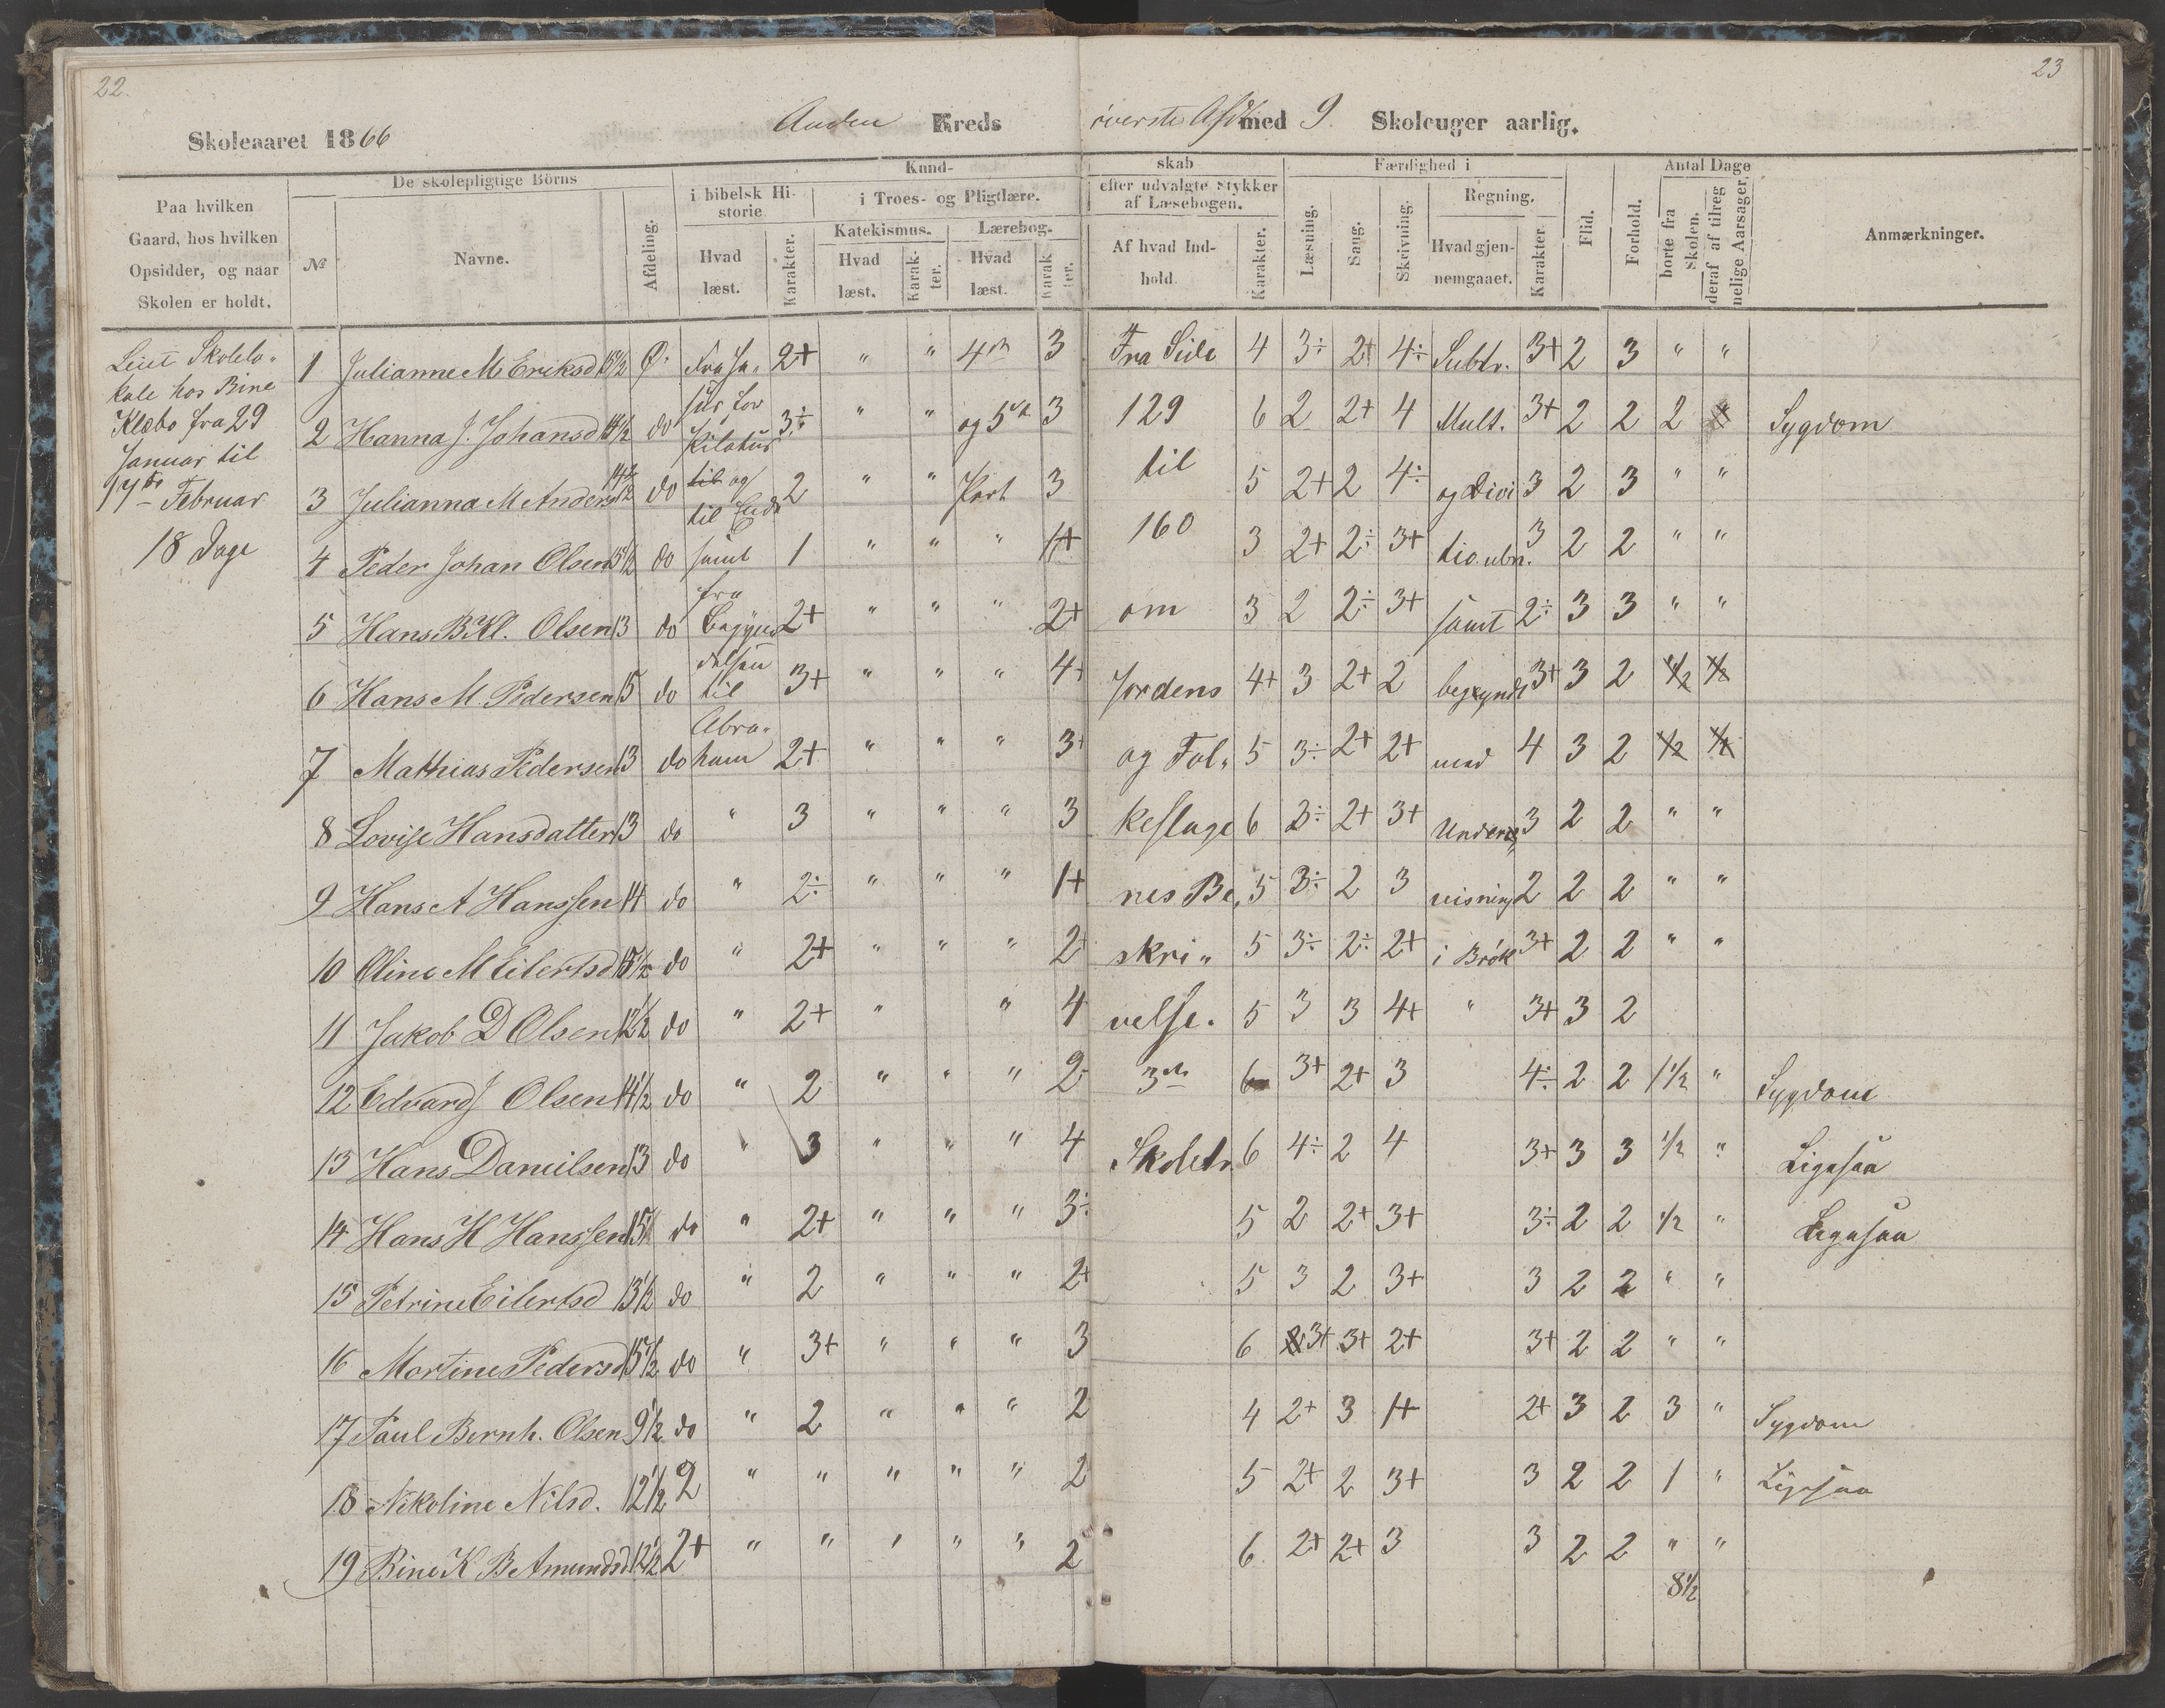 22.
23
Skoleaaret 1866 Anden Kreds øverste Afd med 9. Skoleuger aarlig.
Paa hvilken Gaard, hos hvilken Opsidder, og naar Skolen er holdt.
De skolepligtige Börns
№ Navne. Afdeling.
Kund-skab
i bibelsk Historie
Hvad læst. Karakter.
i Troes- og Pligtlære.
Katekismus. Lærebog.
Hvad læst. Karakter. Hvad læst. Karakter.
efter udvalgte Stykker af Læsebogen.
Af hvad Indhold. Karakter.
Færdighed i
Læsning. Sang. Skrivning. Regning.
Hvad gjennemgaaet. Karakter.
Flid. Forhold.
Antal Dage
borte fra Skolen. deraf af tilregnelige Aarsager.
Anmærkninger.
Leiet Skolelo-
kale hos Bine
Klæbo fra 29
Januar til
17de Februar
18 Dage
1 Julianne M Eriksd 15 1/2 Ø. Fra Je- 2+ " " 4de 3 Fra Side 4 3÷ 2+ 4÷ Subtr. 3+ 2 3 " "
2 Hanna J. Johansd 14 1/2 do sus for Pilatus 3÷ " " og 5te 3 129 6 2 2+ 4 Mult. 3+ 2 2 2 Sygdom
3 Julianna M Anders 14 1/2 do til og til Ende 2 " " Part 3 til 5 2+ 2 4÷ og Divi 3 2 3 " "
4 Peder Johan Olsen 15 1/2 do samt 1 " " " 1+ 160 3 2+ 2÷ 3+ tio. ubn. 3 2 2 " "
5 Hans B Kl. Olsen 13 do fra Begyn 2+ " " " 2+ om 3 2 2÷ 3+ samt 2÷ 3 3 " "
6 Hans M. Pedersen 15 do delsen til 3+ " " " 4+ Jordens 4+ 3 2+ 2 begyndt 3+ 3 2 1/2 1/2
7 Mathias Pedersen 13 do Abra-ham 2+ " " " 3+ og Fol- 5 3÷ 2+ 2+ med 4 3 2 1/2 1/2
8 Lovise Hansdatter 13 do " 3 " " " 3 keslage 6 3÷ 2+ 3+ Under 3 2 2 " "
9 Hans A Hanssen 14 do " 2÷ " " " 1+ nes Be- 5 3÷ 2 3 visning 2 2 2 " "
10 Oline M Eilertsd 15 1/2 do " 2+ " " " 2+ skri- 5 3÷ 2÷ 2+ i Brøk 3+ 2 2 " "
11 Jakob D Olsen 12 1/2 do " 2+ " " 4 velse. 5 3 3 4+ " 3+ 3 2
12 Edvard J Olsen 14 1/2 do " 2 " " " 2 3die 6 3+ 2+ 3 4÷ 2 2 1 1/2 " Sygdom
13 Hans Danielsen 13 do " 3 " " " 4 Skoletr. 6 4÷ 2 4 3+ 3 3 1/2 " Ligesaa
14 Hans H Hanssen 15 1/2 do " 2+ " " " 3÷ 5 2 2+ 3+ 3÷ 2 2 1/2 " Ligesaa
15 Petrine Eilertsd 13 1/2 do " 2 " " " 2+ 5 3 2 3+ 3 2 2 " "
16 Martine Pedersd 15 1/2 do " 3+ " " " 3 6 3+ 3+ 2+ 3+ 2 2 " "
17 Paul Bernh. Olsen 9 1/2 do " 2 " " " 2 4 2+ 3 1+ 2+ 3 2 3 " Sygdom
18 Nikoline Nilsd. 12 1/2 2 " " " " " 2 5 2+ 2 3+ 3 2 2 1 " Ligesaa
19 Bine K B Amundsd 12 1/2 2+ " " " " " 2 6 2+ 2+ 3 3 2 2 " "
8 1/2